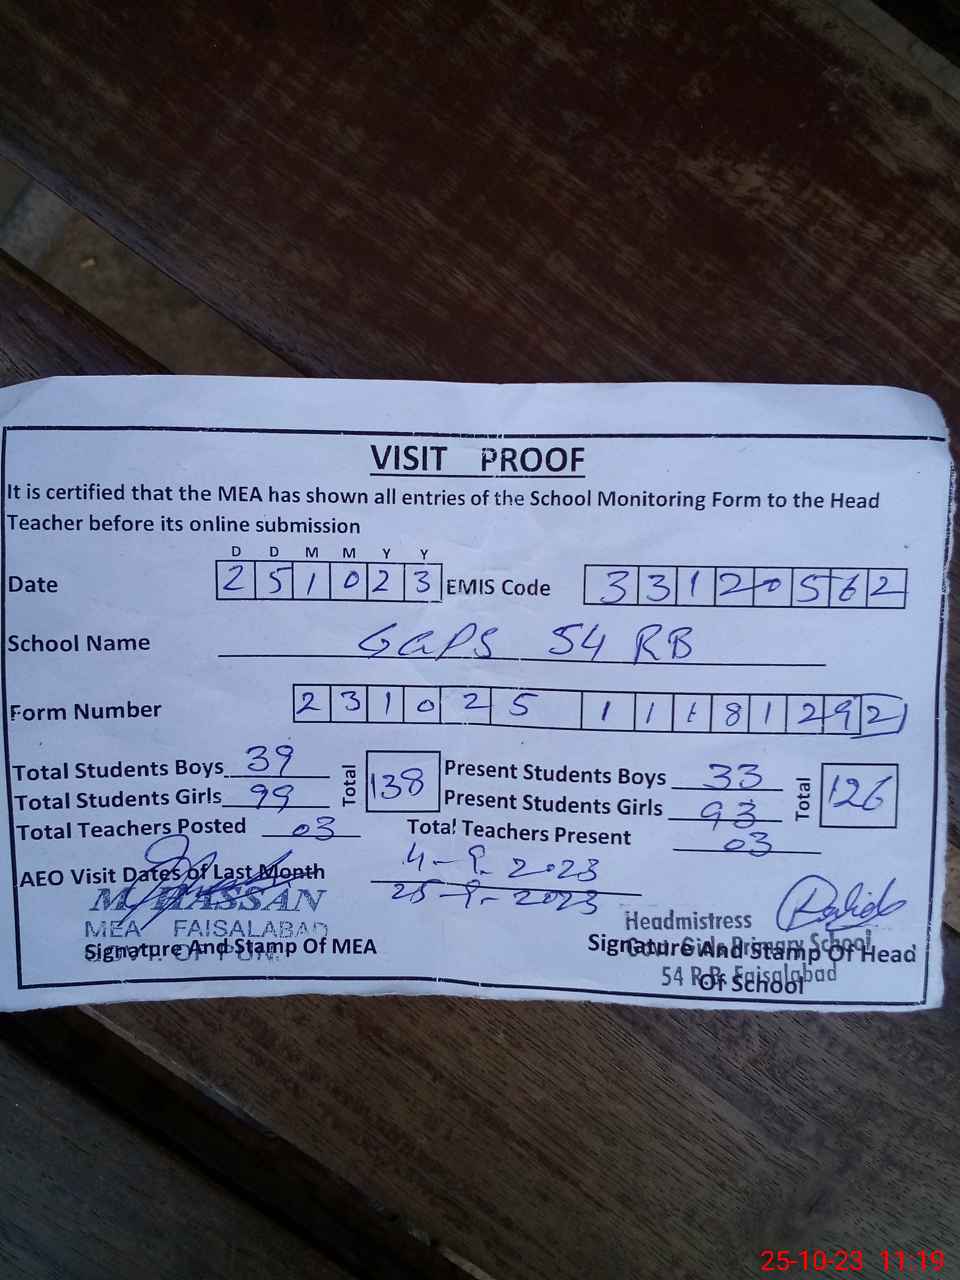 VISIT PROOF
It is certified that the MEA has shown all entries of the School Monitoring Form to the Head
Teacher before its online submission
D D M M Y Y
Date 2 5 1 0 2 3 EMIS Code 3 3 1 2 0 5 6 2
School Name GGPS 54 RB
Form Number 2 3 1 0 2 5 1 1 1 8 1 2 9 2
Total Students Boys 39 Total 138 Present Students Boys 33 Total 126
Total Students Girls 99 Present Students Girls 93
Total Teachers Posted 03 Total Teachers Present 03
AEO Visit Dates of Last Month 4-9-2023
25-9-2023
M. HASSAN
MEA FAISALABAD
Signature And Stamp Of MEA
Headmistress
Govt. Girls Primary School
54 R.B. Faisalabad
Signature And Stamp Of Head
Of School
25-10-23 11:19